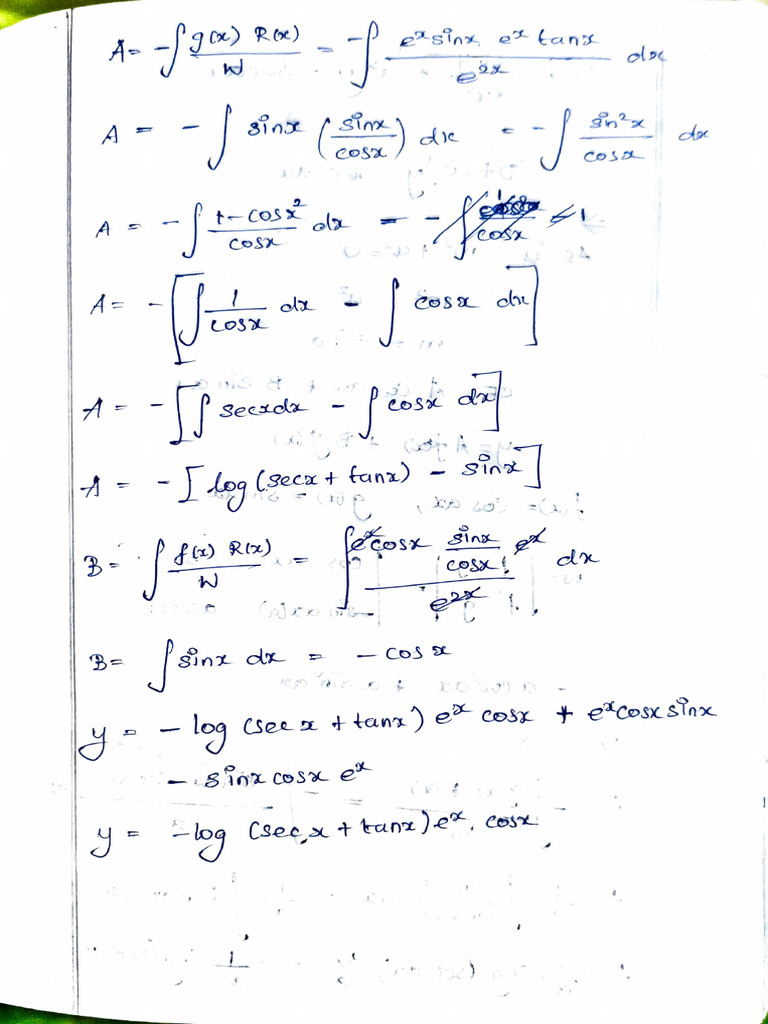 A = -∫ g(x) R(x) / W = -∫ e^x sinx e^x tanx / e^2x dx
A = -∫ sinx (sinx / cosx) dx = -∫ sin²x / cosx dx
A = -∫ 1-cosx² / cosx dx = -∫ cosx - 1
A = -[∫ 1 / cosx dx - ∫ cosx dx]
A = -[∫ secxdx - ∫ cosx dx]
A = -[log(secx + tanx) - sinx]
B = ∫ f(x) R(x) / W = ∫ e^x cosx sinx / cosx e^x / e^2x dx
B = ∫ sinx dx = - cosx
y = - log (secx + tanx) e^x cosx + e^x cosx sinx
- sinx cosx e^x
y = -log (secx + tanx) e^x. cosx